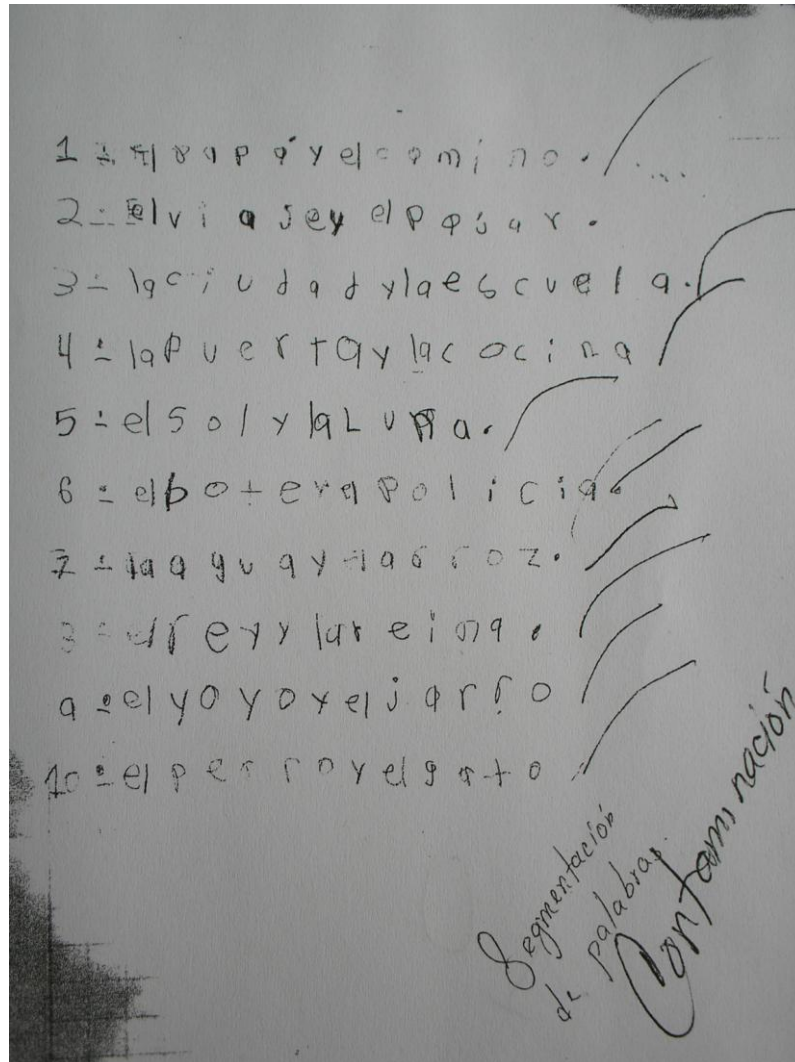 1 = El papá y el camino.
2 = El viaje y el pajar.
3 = la ciudad y la escuela.
4 = la puerta y la cocina
5 = el Sol y la Luna.
6 = el bote y a Policia.
7 = la agua y arroz.
8 = el rey y la reina.
9 = el yoyo y el jarro
10 = el perro y el gato
Segmentación
de palabras
Contaminación